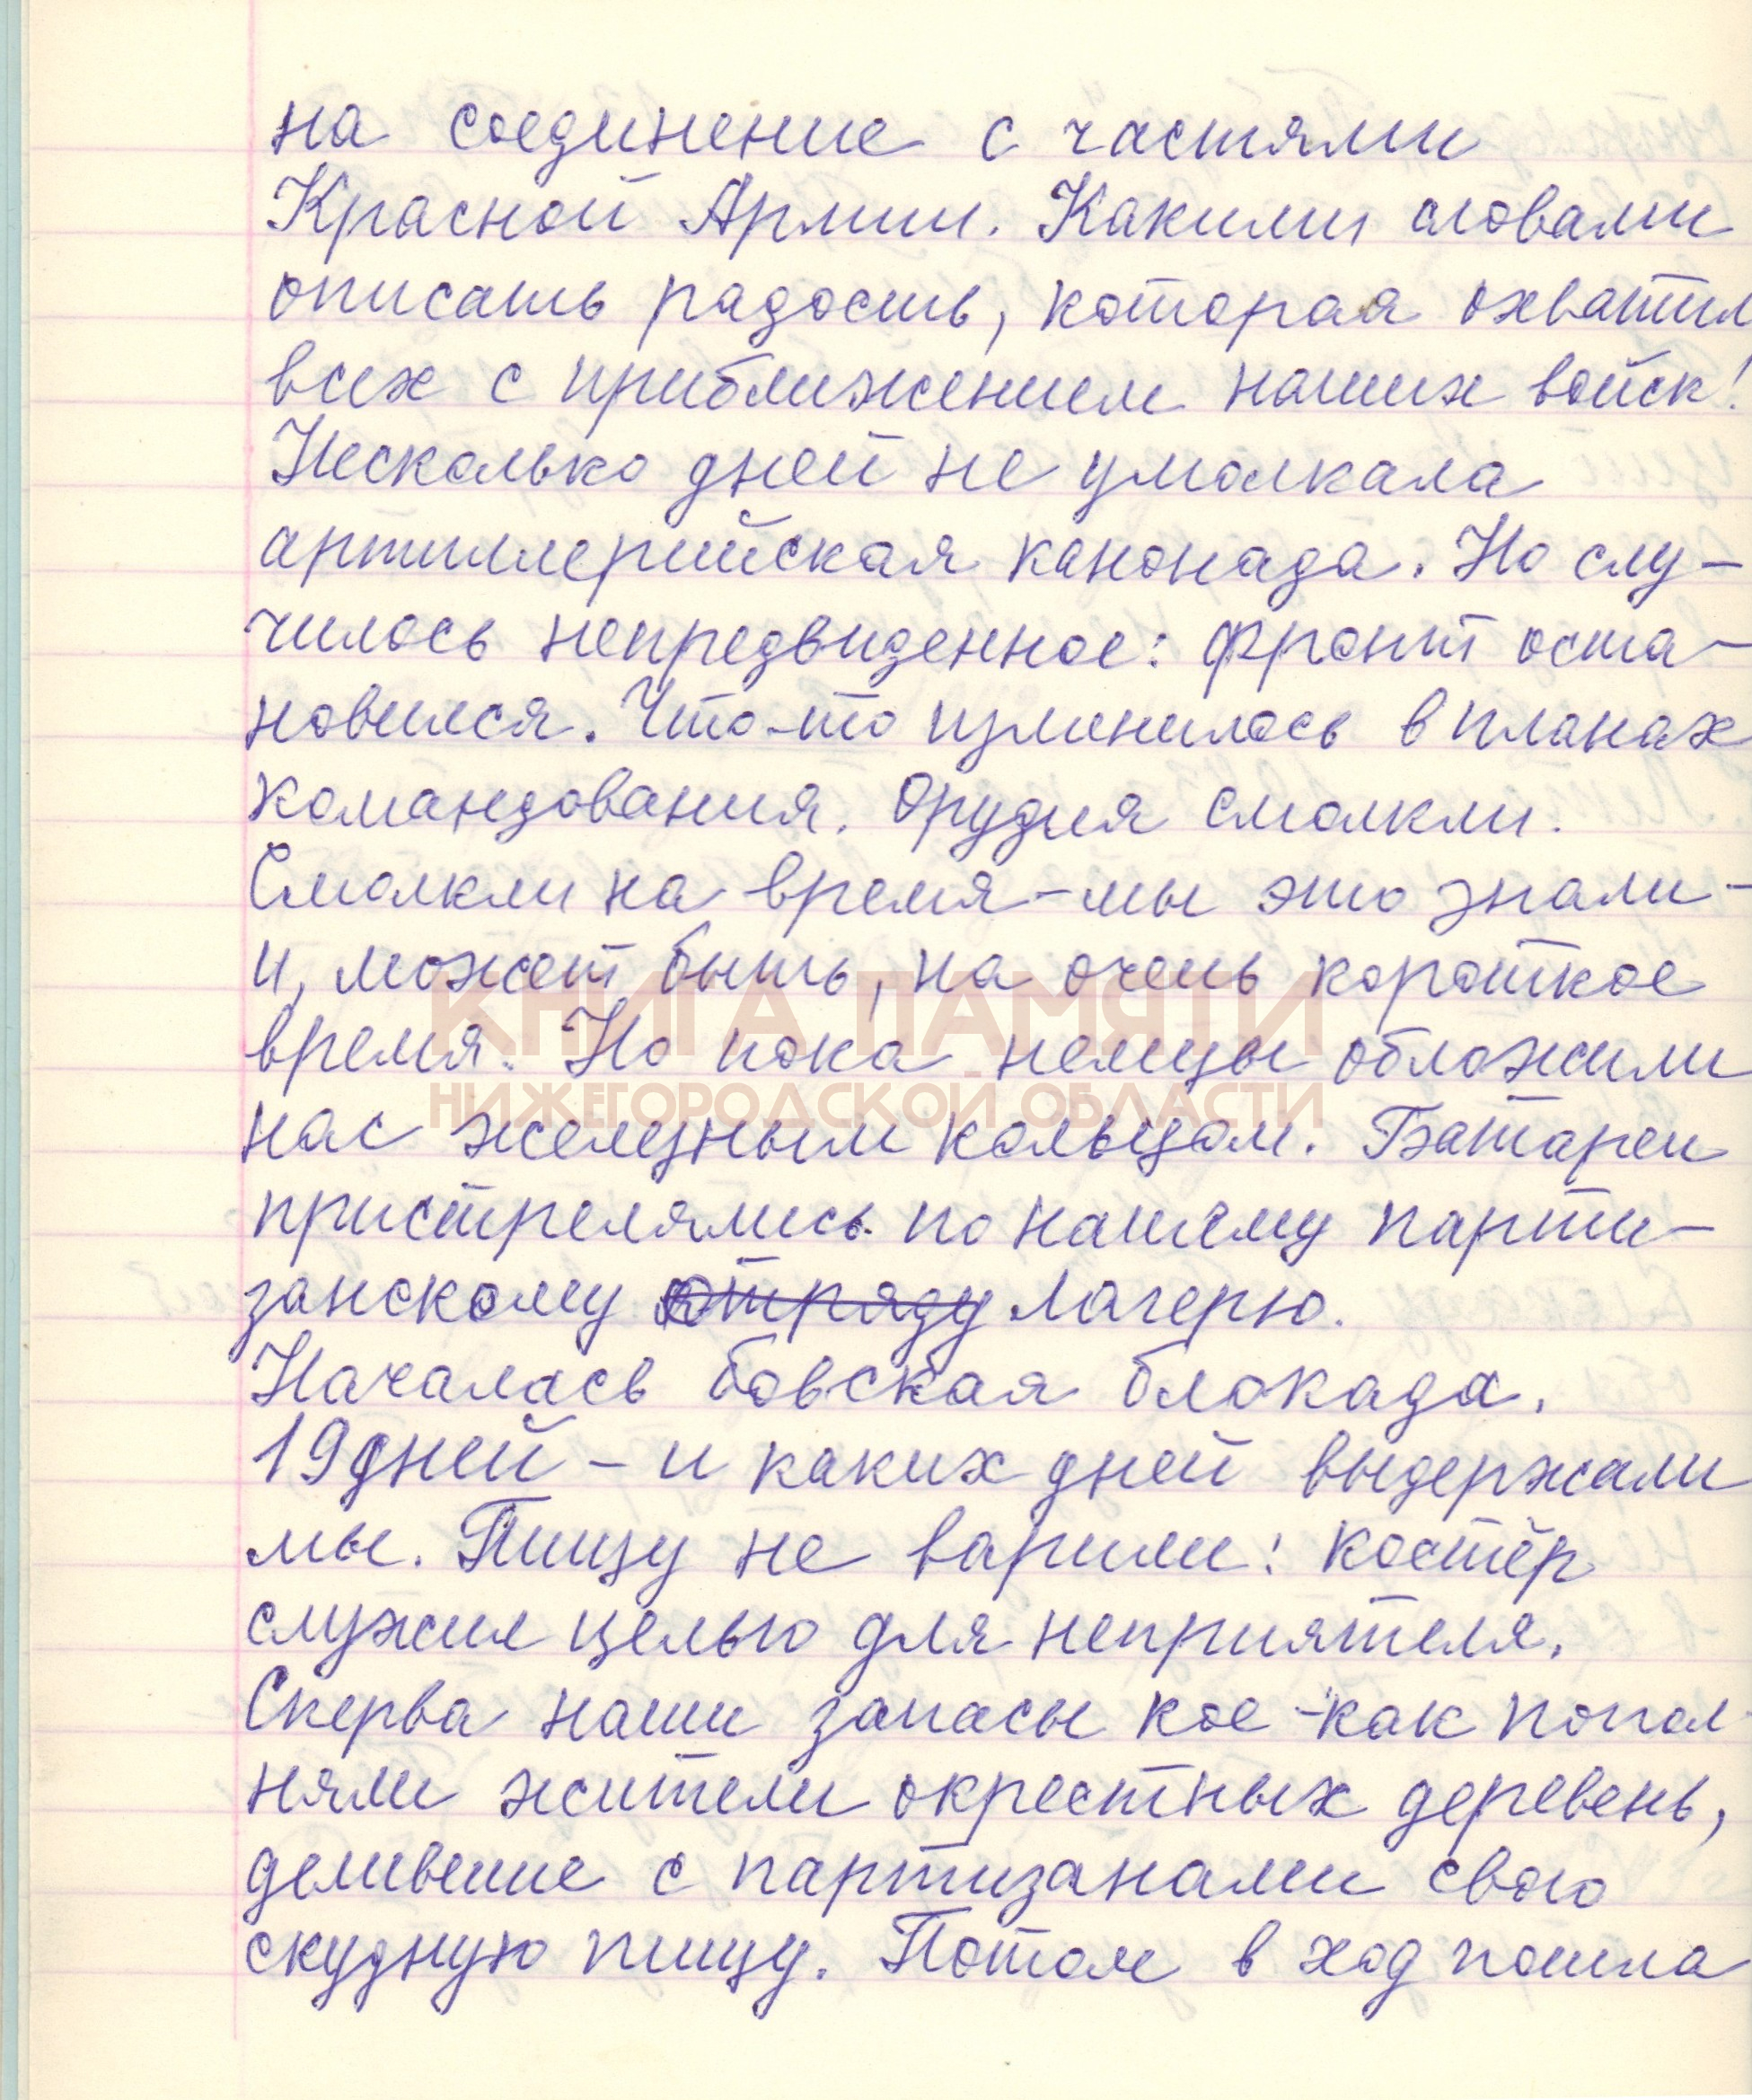 на соединение с частями
Красной Армии. Какими словами
описать радость, которая охватил
всех с приближением наших войск!
Несколько дней не умолкала
артиллерийская канонада. Но слу-
чилось непредвиденное: фронт оста-
новился. Что-то изменилось в планах
командования. Орудия смолкли.
Смолкли на время - мы это знали -
и, может быть, на очень короткое
время. Но пока немцы обложили
нас железным кольцом. Батареи
пристрелялись по нашему парти-
занскому отряду лагерю.
Началась бовская блокада.
19 дней - и каких дней выдержали
мы. Пищу не варили: костёр
служил целью для неприятеля.
Сперва наши запасы кое-как попол-
няли жители окрестных деревень,
делившие с партизанами свою
скудную пищу. Потом в ход пошла
КНИГА ПАМЯТИ
НИЖЕГОРОДСКОЙ ОБЛАСТИ